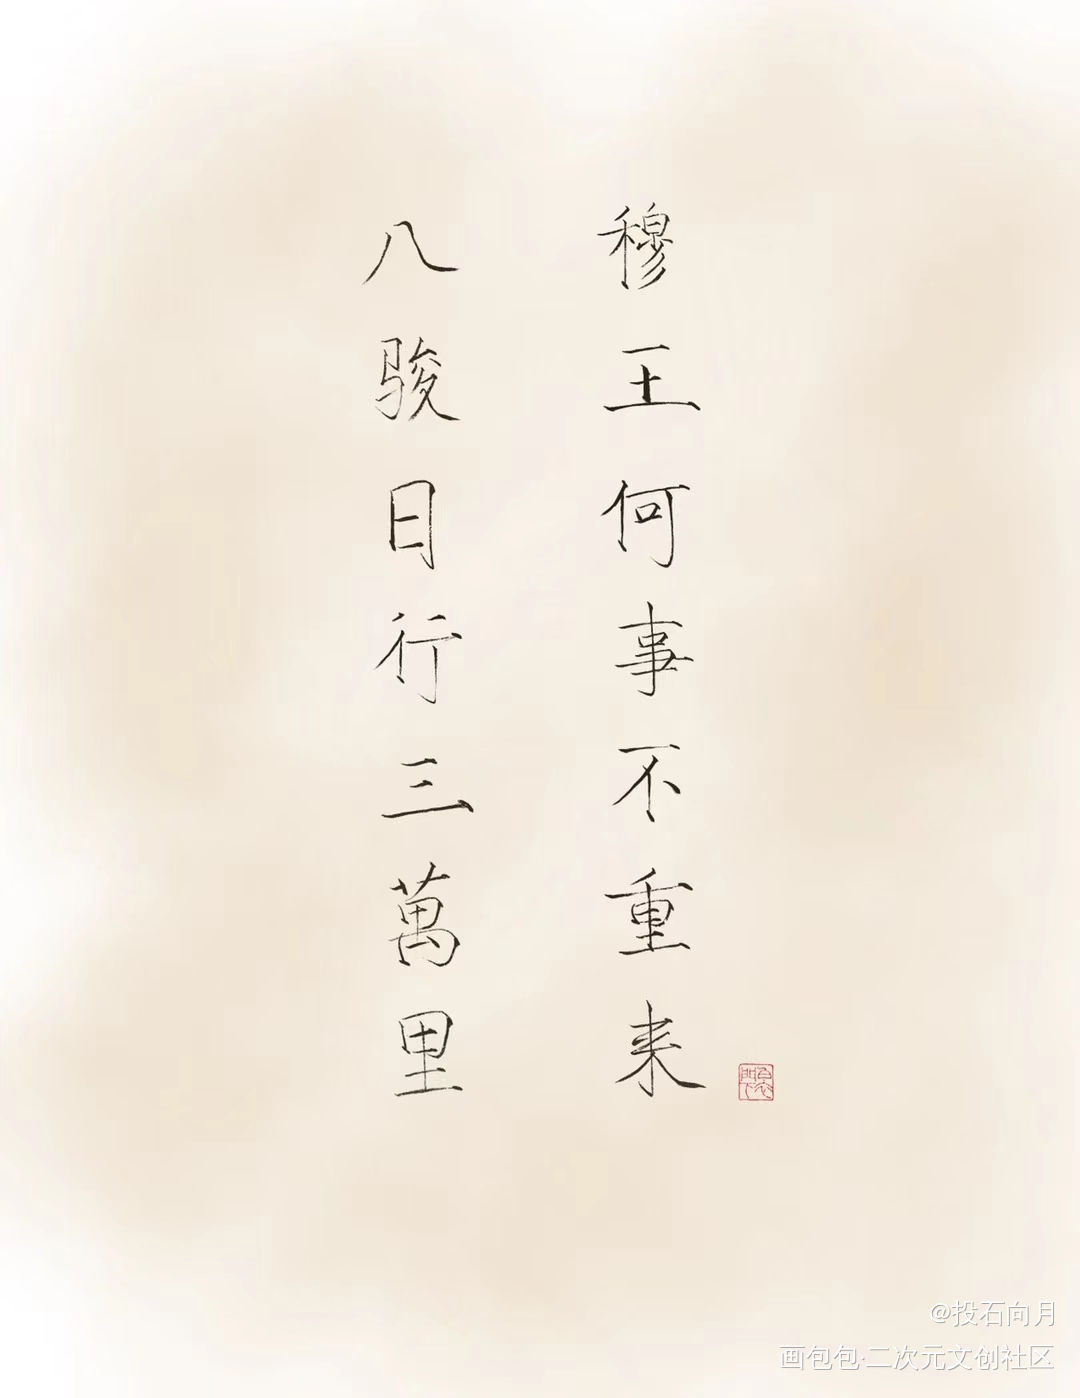 穆王何事不重来
八骏日行三萬里
@投石向月
画包包·二次元文创社区